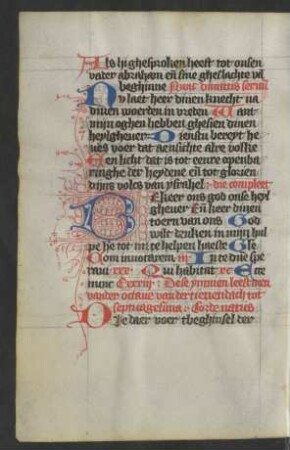 Als hi ghesproken heeft tot onsen
vader abraham eñ sine gheslachte vā
beghinne Nunc dimittis seruū
Nu laet heer dinen knecht na
dinen woerden in vreden Want
mijn oghen hebben ghesien dinen
heylgheuer Dienstu bereyt he
ues voer dat aensichte alre volke
Een licht dat is tot eenre openba
ringhe der heydene eñ tot glorien
dijns volcs van ysrahel die compleet
BEkeer ons god onse heyl
gheuer Eñ keer dinen
toern van ons God
wilt denken in mijn hul
pe he tot mi te helpen haeste Glē
Dom inuocarem iij In te dñe spe
raui xxx Qui habitat xc Ecce
nunc Cxxxiij Dese ymnen leestmen
vander octaue van dertienendach tot
septuagesima Corde natus
Die daer voer tbeghinsel der